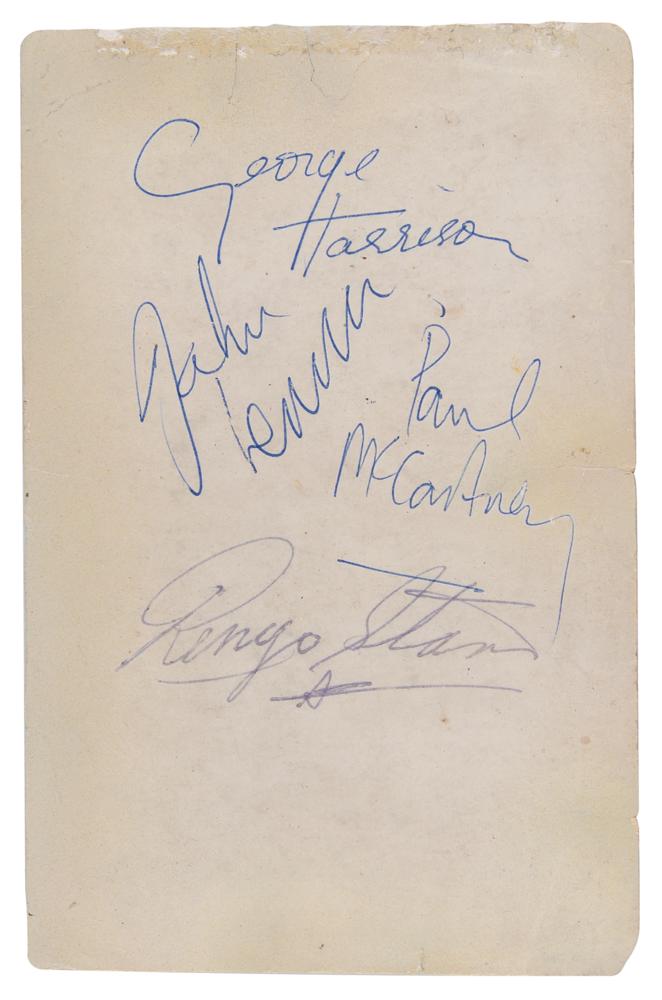 George
Harrison
John
Lennon
Paul
McCartney
Ringo Starr